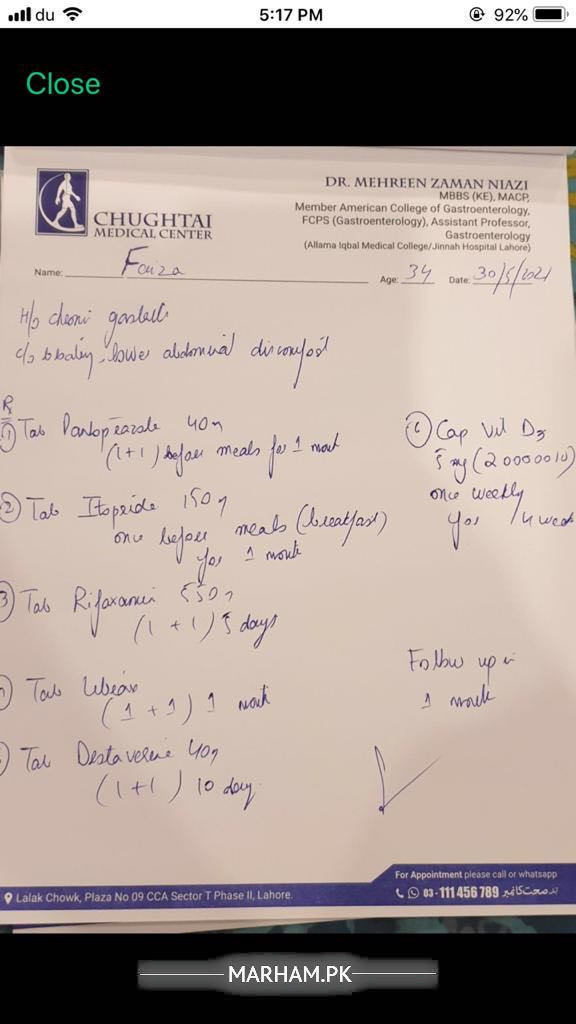 du
5:17 PM
92%
Close
CHUGHTAI
MEDICAL CENTER
DR. MEHREEN ZAMAN NIAZI
MBBS (KE), MACP,
Member American College of Gastroenterology,
FCPS (Gastroenterology), Assistant Professor,
Gastroenterology
(Allama Iqbal Medical College/Jinnah Hospital Lahore)
Name: Faiza
Age: 34 Date: 30/5/2021
H/o
c/o lower abdominal discomfort
Rx
① Tab 40
(1+1) before meals for 1
② Tab Itopride 150
once before meals (breakfast)
for 1
3 Tab 550
(1 + 1) 5 days
Tab
(1 + 1) 1
Tab 40
(1+1) 10 day
Cap Vit D3
5 mg
once weekly
for 4 week
Follow up in
1
For Appointment please call or whatsapp
03 - 111 456 789
Lalak Chowk, Plaza No 09 CCA Sector T Phase II, Lahore.
MARHAM.PK